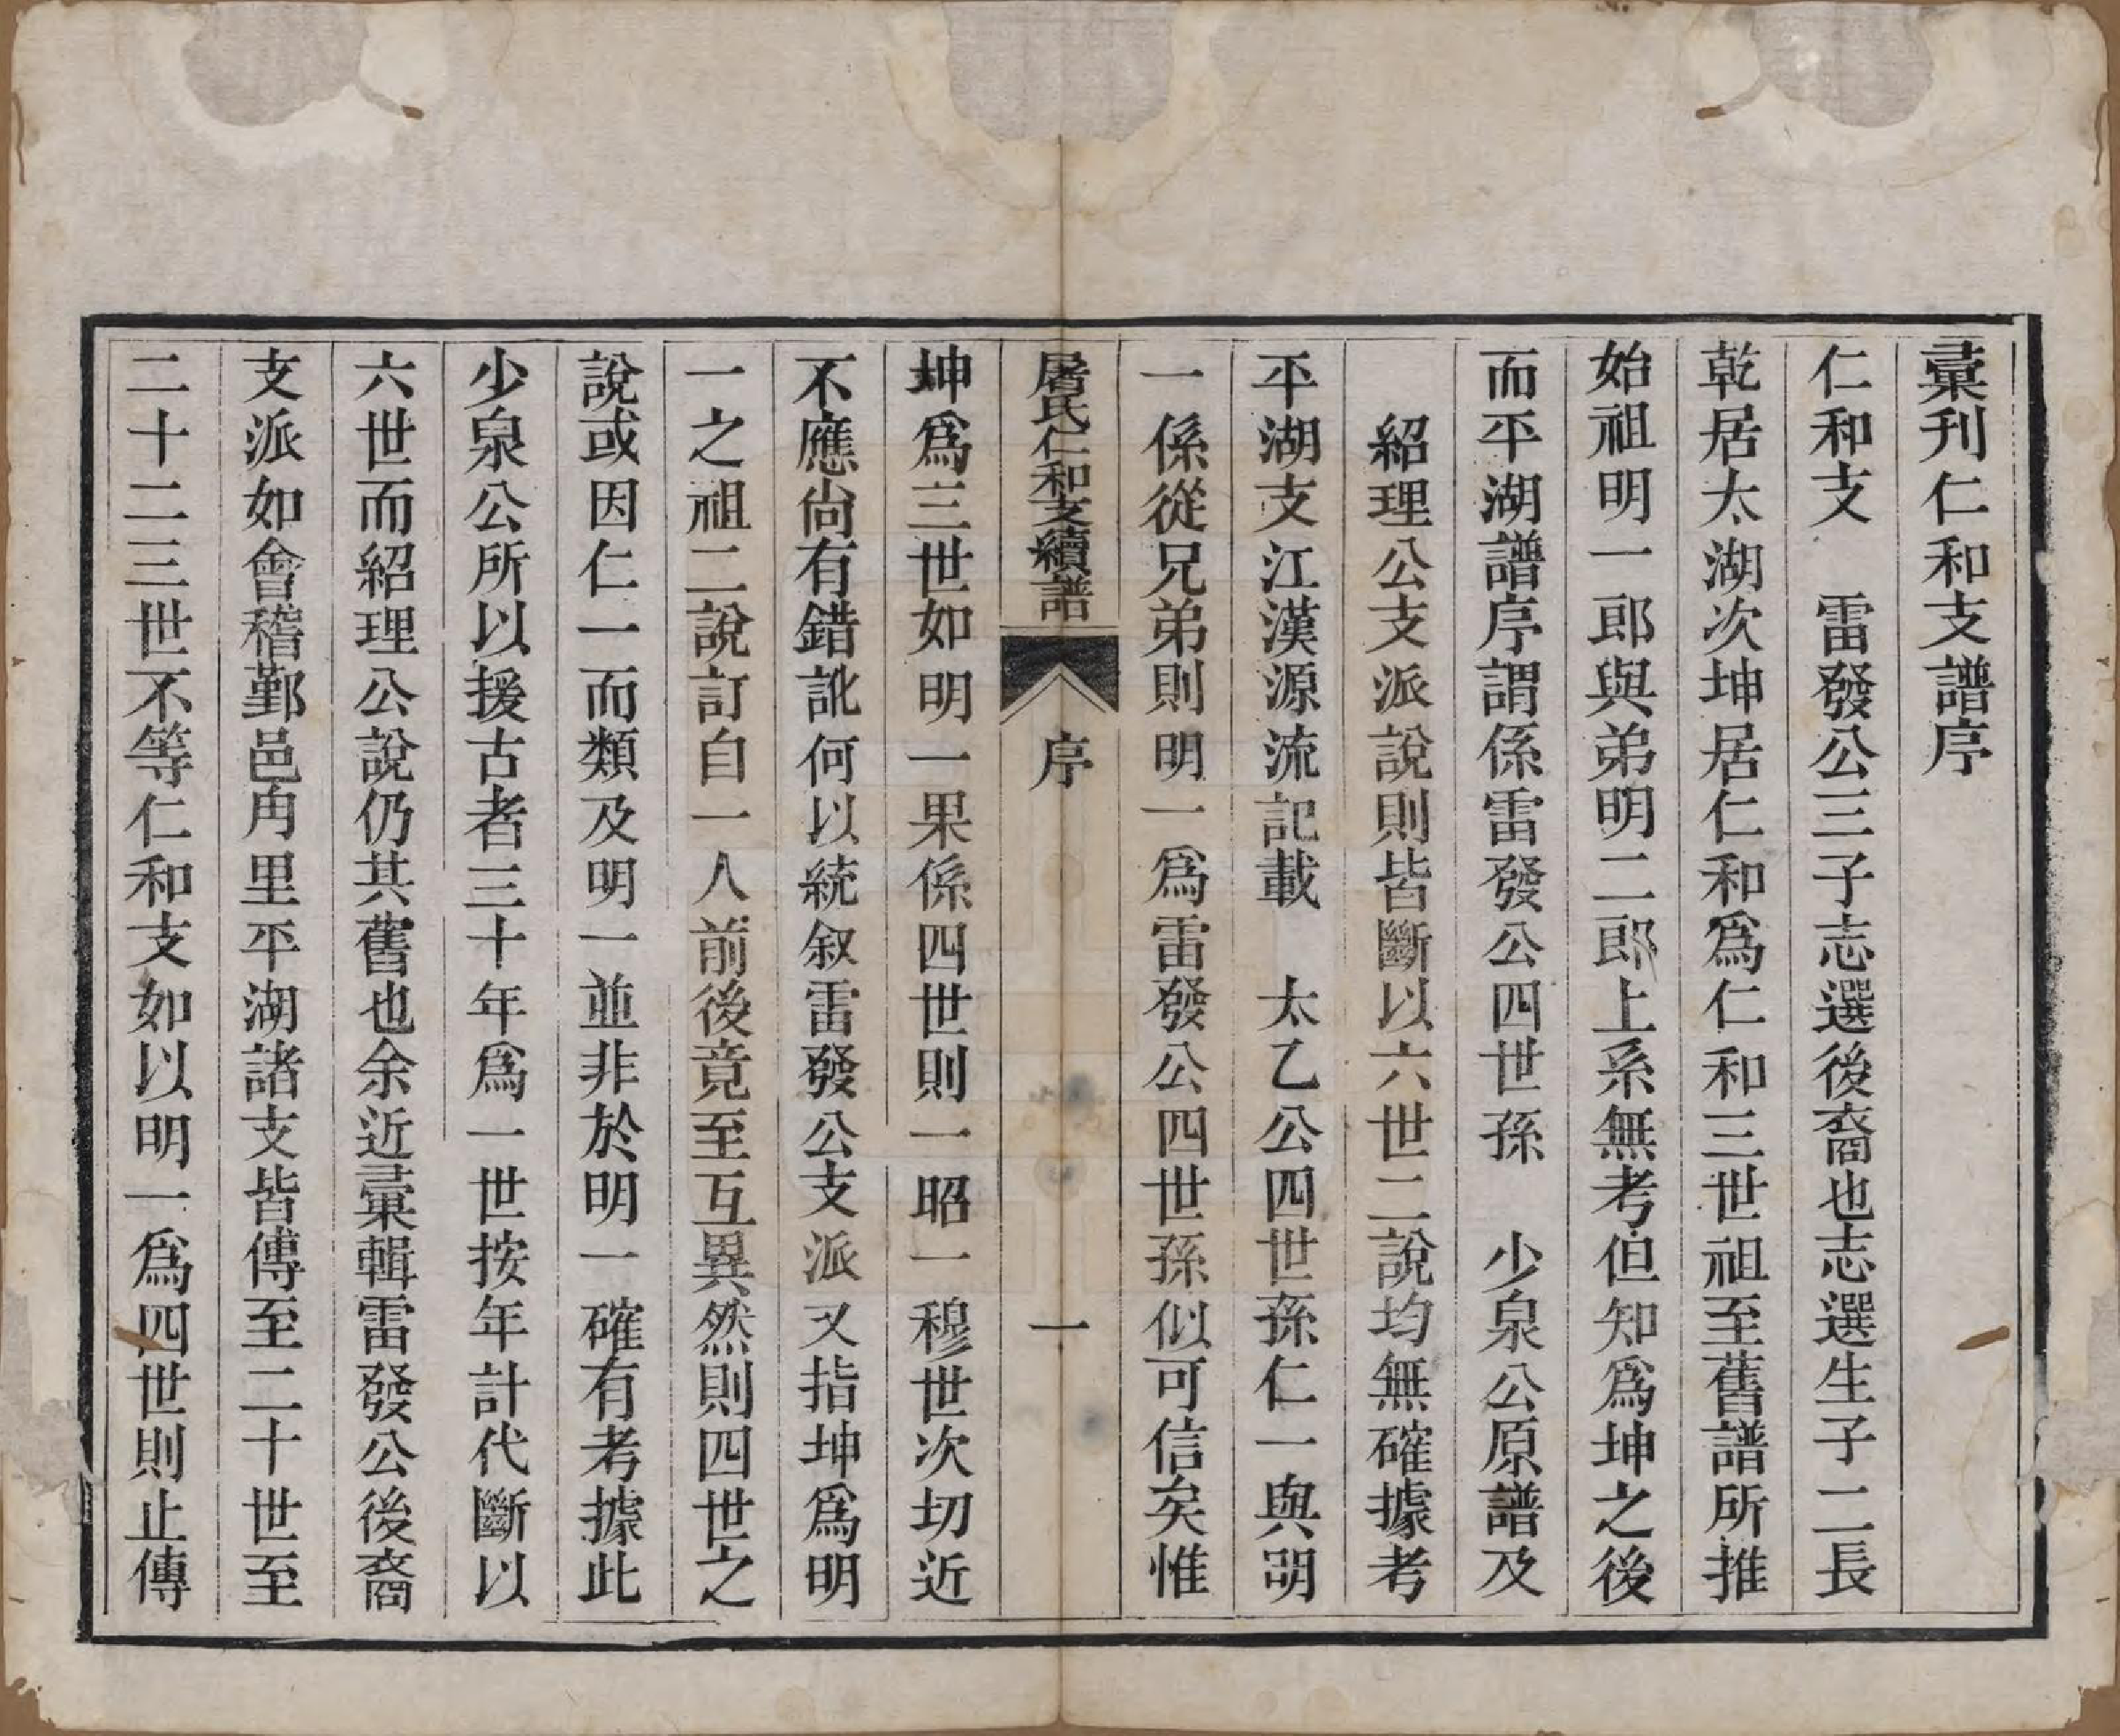 彙刊仁和支譜序
仁和支　雷發公三子志選後裔也志選生子二長
乾居太湖次坤居仁和爲仁和三世祖至舊譜所推
始祖明一郎與弟明二郎上系無考但知爲坤之後
而平湖譜序謂係雷發公四世孫　少泉公原譜及
　紹理公支派說則皆斷以六世二說均無確據考
平湖支江漢源流記載　太乙公四世孫仁一與明
一係從兄弟則明一爲雷發公四世孫似可信矣惟
屠氏仁和支續譜　序　一
坤爲三世如明一果係四世則一昭一穆世次切近
不應尙有錯訛何以統叙雷發公支派又指坤爲明
一之祖二說訂自一人前後竟至互異然則四世之
說或因仁一而類及明一並非於明一確有考據此
少泉公所以援古者三十年爲一世按年計代斷以
六世而紹理公說仍其舊也余近彙輯雷發公後裔
支派如會稽鄞邑甪里平湖諸支皆傳至二十世至
二十二三世不等仁和支如以明一爲四世則止傳